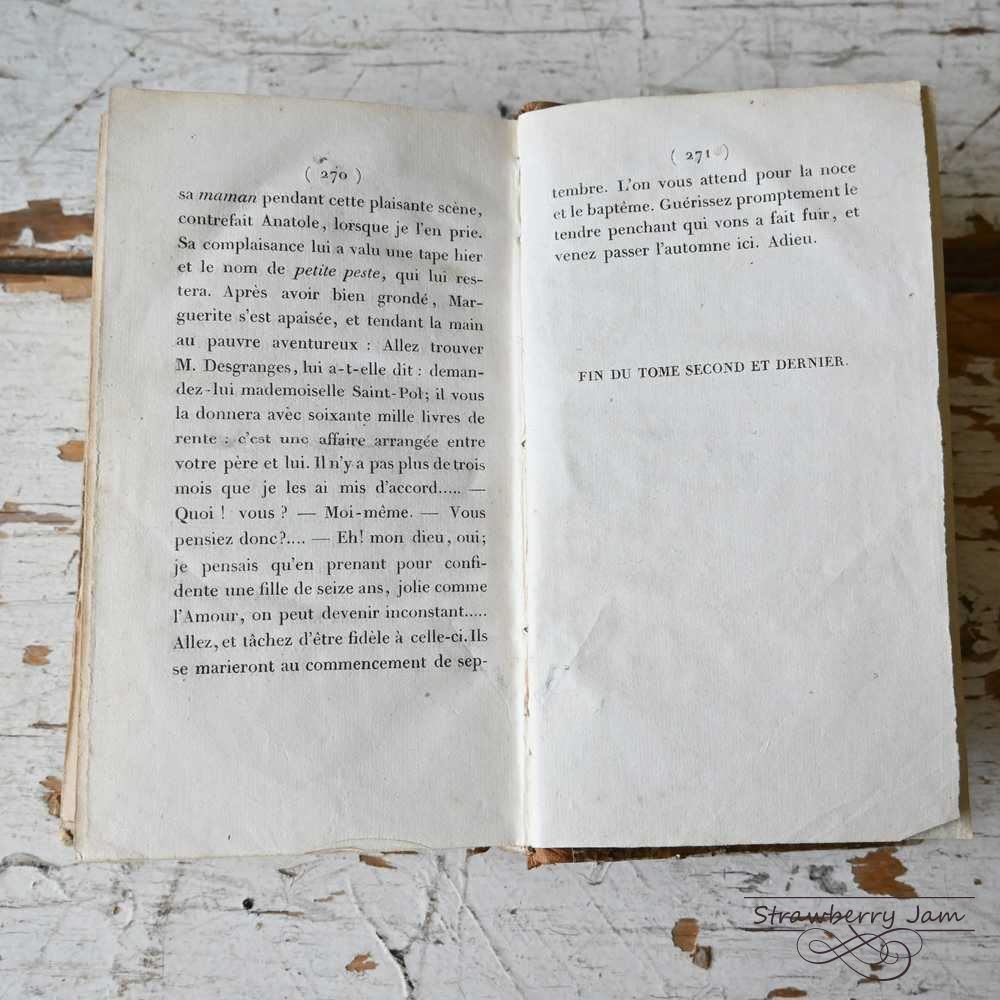 ( 270 )
sa maman pendant cette plaisante scène,
contrefait Anatole, lorsque je l'en prie.
Sa complaisance lui a valu une tape hier
et le nom de petite peste, qui lui res-
tera. Après avoir bien grondé, Mar-
guerite s'est apaisée, et tendant la main
au pauvre aventureux : Allez trouver
M. Desgranges, lui a-t-elle dit : deman-
dez-lui mademoiselle Saint-Pol; il vous
la donnera avec soixante mille livres de
rente : c'est une affaire arrangée entre
votre père et lui. Il n'y a pas plus de trois
mois que je les ai mis d'accord..... —
Quoi ! vous ? — Moi-même. — Vous
pensiez donc?.... — Eh! mon dieu, oui;
je pensais qu'en prenant pour confi-
dente une fille de seize ans, jolie comme
l'Amour, on peut devenir inconstant.....
Allez, et tâchez d'être fidèle à celle-ci. Ils
se marieront au commencement de sep-
( 271 )
tembre. L'on vous attend pour la noce
et le baptême. Guérissez promptement le
tendre penchant qui vons a fait fuir, et
venez passer l'automne ici. Adieu.
FIN DU TOME SECOND ET DERNIER.
Strawberry Jam